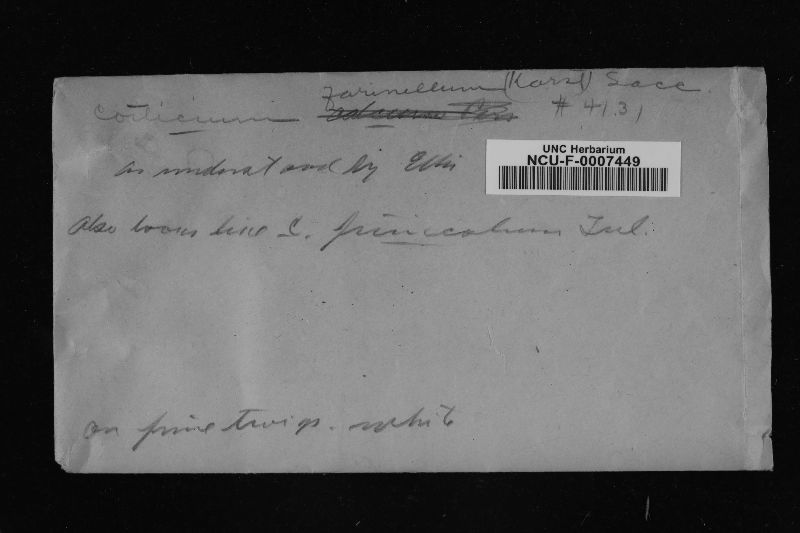 farinellum (Karst) Sacc.
Corticium # 4131
UNC Herbarium
NCU-F-0007449
as understood by Ellis
Also looks like C. pinicolum Tul.
on pine twigs. white